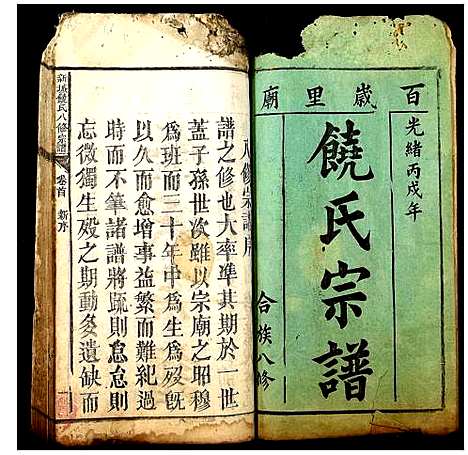 百歲里廟
光緒丙戌年
饒氏宗譜
合族八修
八修宗譜序
譜之修也大率準其期於一世
蓋子孫世次雖以宗廟之昭穆
為班而三十年中為生為歿旣
以久而愈增事益繁而難紀過
時而不筆諸譜將疏則怠怠則
忘微獨生歿之期動多遺缺而
新城饒氏八修宗譜
卷首
新序